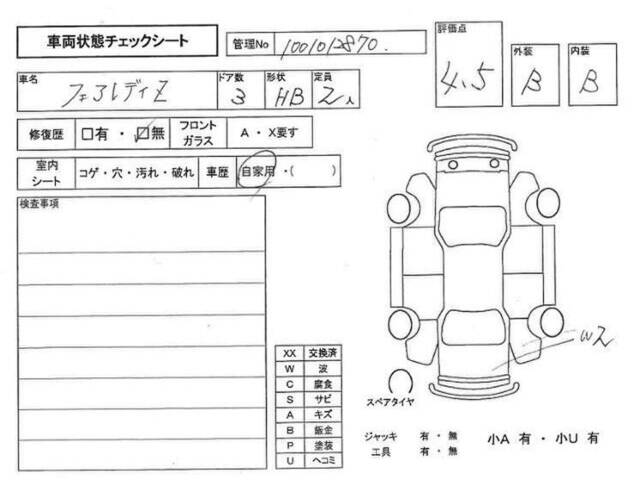 車両状態チェックシート
管理No 1001012870.
評価点 4.5
外装 B
内装 B
車名 フェアレディZ
ドア数 3
形状 HB
定員 2人
修復歴 □有・☑無
フロントガラス A・X要す
室内シート コゲ・穴・汚れ・破れ
車歴 自家用・( )
検査事項
XX 交換済
W 波
C 腐食
S サビ
A キズ
B 鈑金
P 塗装
U ヘコミ
W2
スペアタイヤ
ジャッキ 有・無
工具 有・無
小A 有・小U 有